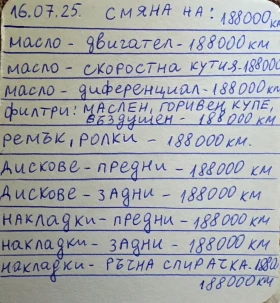 16.07.25. СМЯНА НА: 188000 КМ
МАСЛО - ДВИГАТЕЛ - 188000 КМ
МАСЛО - СКОРОСТНА КУТИЯ - 188000
МАСЛО - ДИФЕРЕНЦИАЛ - 188000 КМ
ФИЛТРИ: МАСЛЕН, ГОРИВЕН, КУПЕ,
ВЪЗДУШЕН - 188000 КМ
РЕМЪК, РОЛКИ - 188000 КМ.
ДИСКОВЕ - ПРЕДНИ - 188000 КМ
ДИСКОВЕ - ЗАДНИ - 188000 КМ
НАКЛАДКИ - ПРЕДНИ - 188000 КМ
НАКЛАДКИ - ЗАДНИ - 188000 КМ
НАКЛАДКИ - РЪЧНА СПИРАЧКА.
188000 КМ